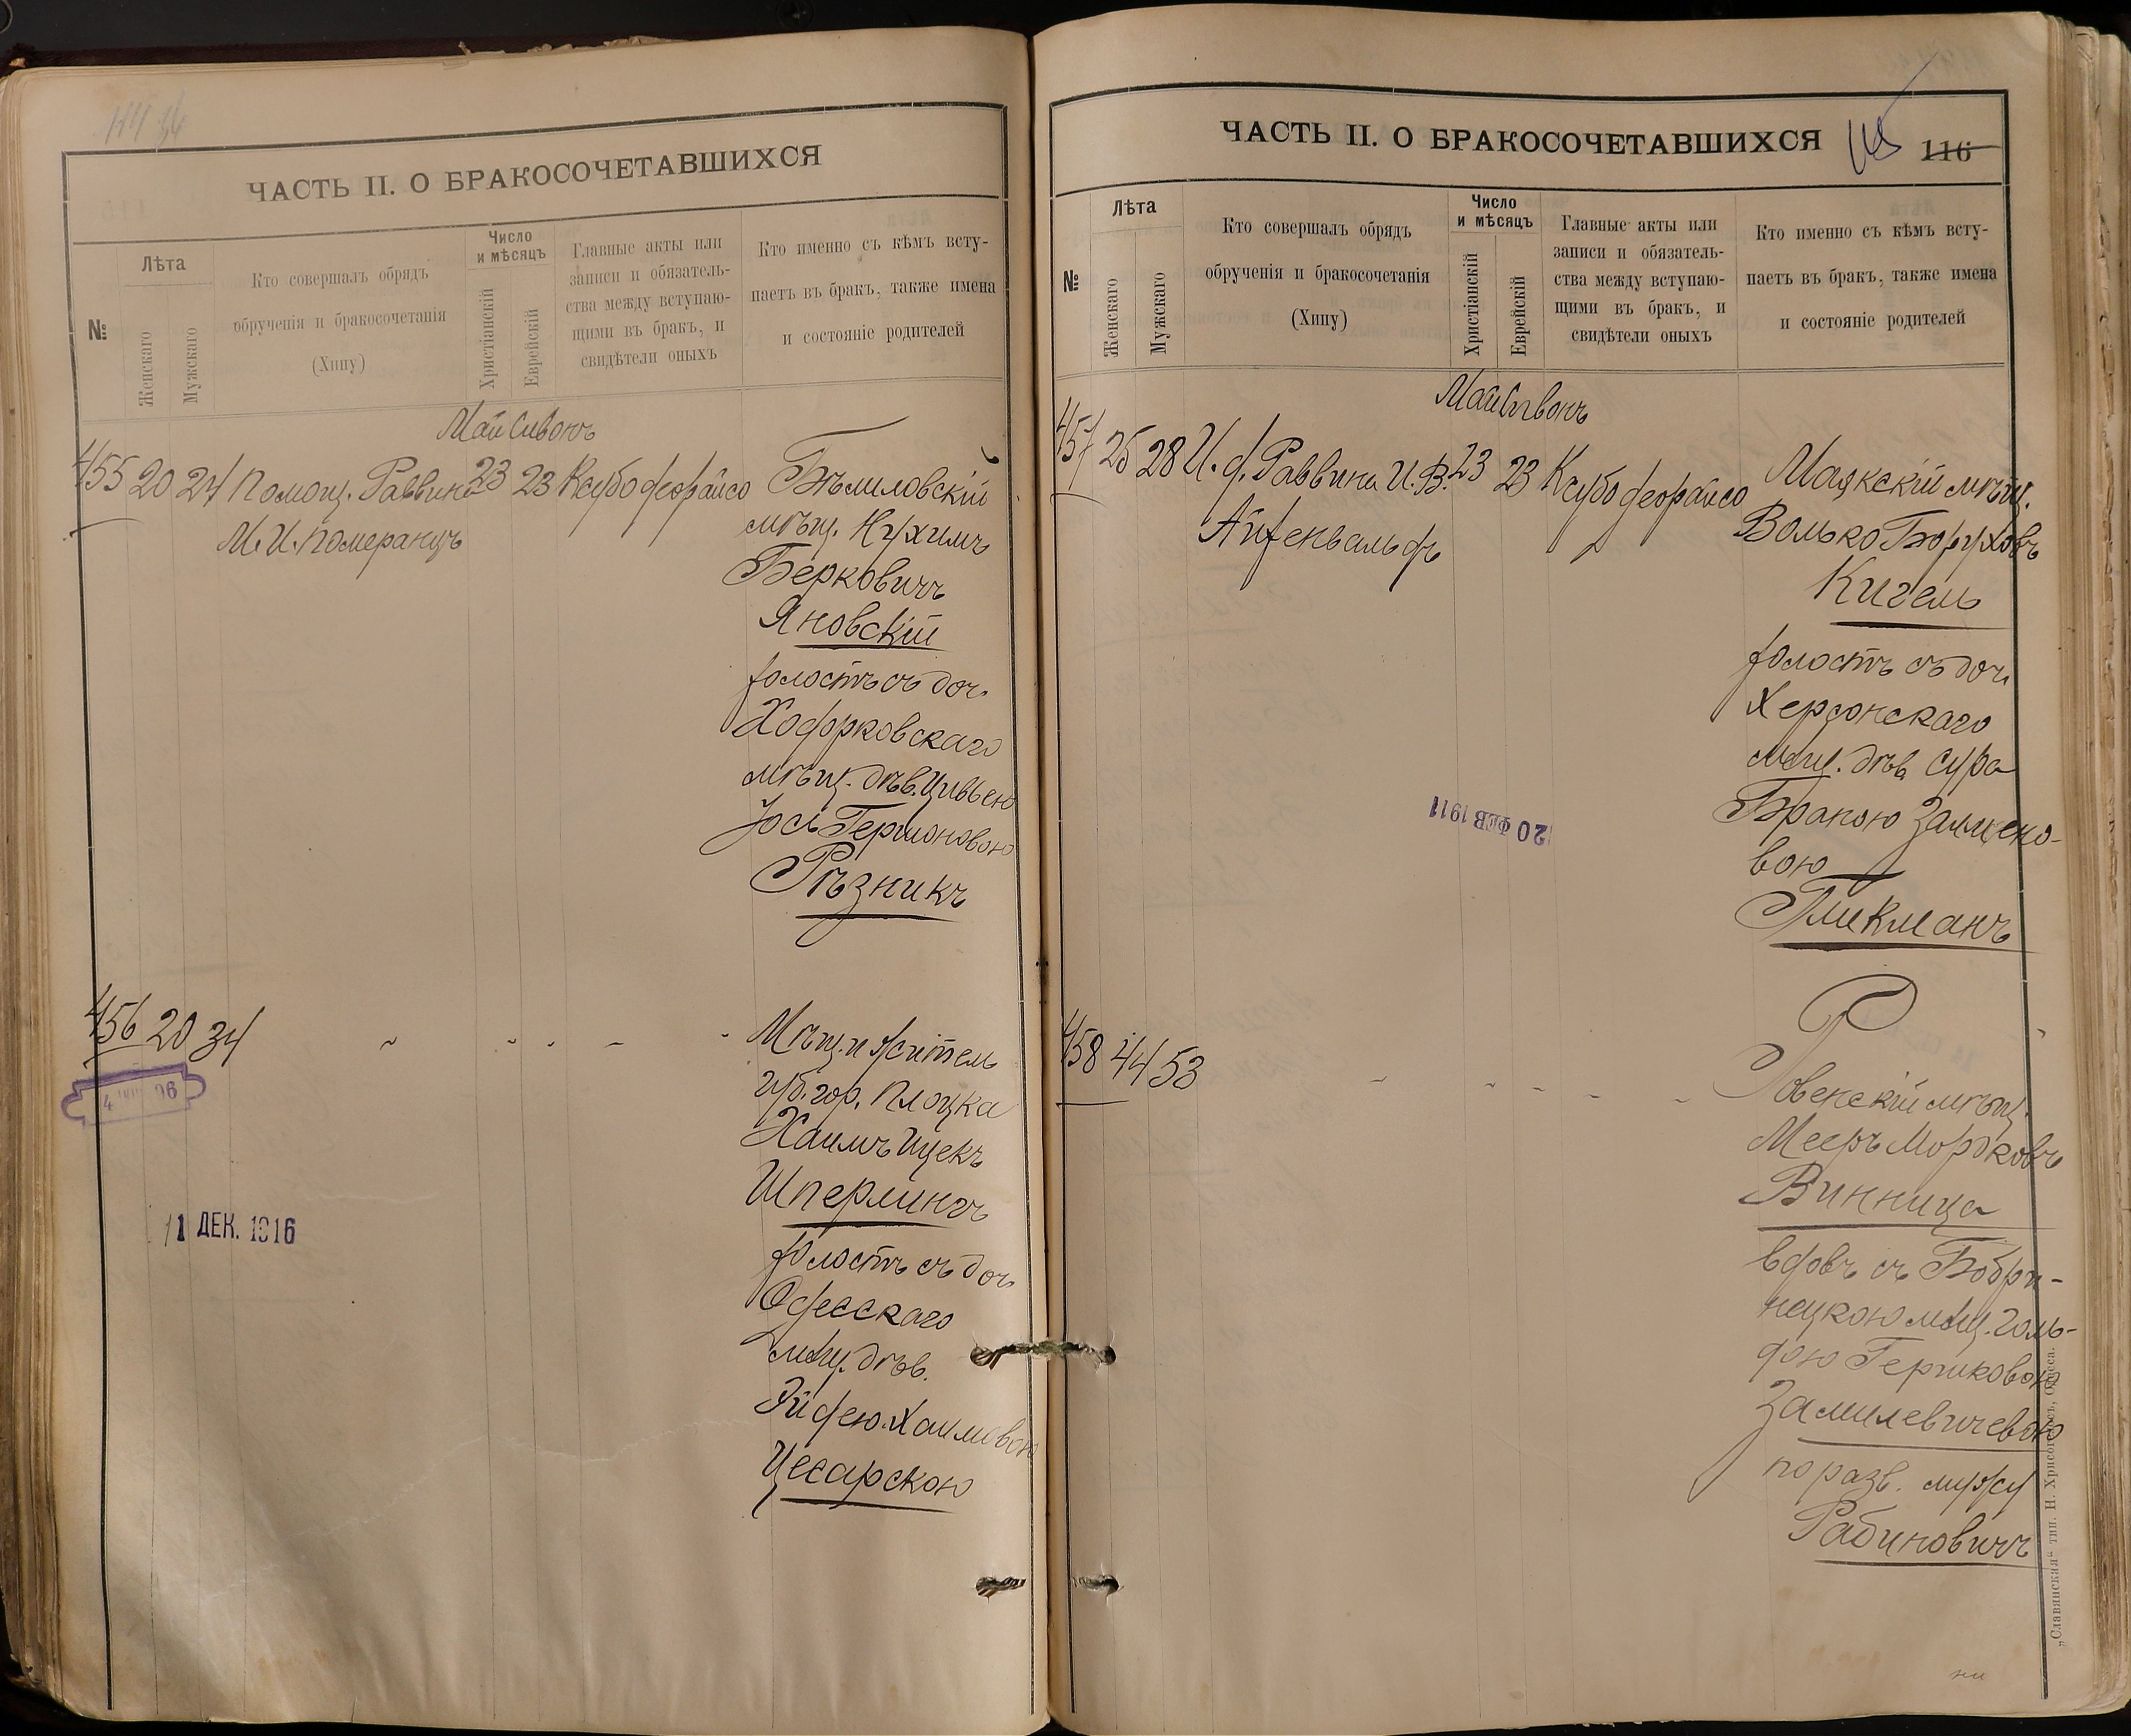 ЧАСТЬ II. О БРАКОСОЧЕТАВШИХСЯ
№
Лѣта
Женскаго
Мужскаго
Кто совершалъ обрядъ
обрученія и бракосочетанія
(Хипу)
Число
и мѣсяцъ
Христіанскій
Еврейскій
Главные акты или
записи и обязатель-
ства между вступаю-
щими въ бракъ, и
свидѣтели оныхъ
Кто именно съ кѣмъ всту-
паетъ въ бракъ, также имена
и состояніе родителей
Май Сивонъ
455 20 24 Помощ. Раввина 23 23 Ксубо деорайсо
М. И. Померанцъ
Бѣлиловскій
мѣщ. Нухимъ
Берковичъ
Яновскій
холостъ съ доч.
Ходорковскаго
мѣщ. дѣв. Цивьею
Гершоновою
Рѣзникъ
456 20 34
Мѣщ. и житель
губ. гор. Плоцка
Хаимъ Ицекъ
Шперлингъ
холостъ съ доч.
Одесскаго
мѣщ. дѣв.
Эйдею Хаимовою
Цесарскою
1 ДЕК. 1916
ЧАСТЬ II. О БРАКОСОЧЕТАВШИХСЯ
115 116
№
Лѣта
Женскаго
Мужскаго
Кто совершалъ обрядъ
обрученія и бракосочетанія
(Хипу)
Число
и мѣсяцъ
Христіанскій
Еврейскій
Главные акты или
записи и обязатель-
ства между вступаю-
щими въ бракъ, и
свидѣтели оныхъ
Кто именно съ кѣмъ всту-
паетъ въ бракъ, также имена
и состояніе родителей
Май Сивонъ
457 25 28 И. д. Раввина И. В. 23 23 Ксубо деорайсо
Айзенвальдъ
Маякскій мѣщ.
Волько Боруховъ
Кигель
холостъ съ доч.
Херсонскаго
мѣщ. дѣв. Сура
Браною Залмено-
вою
Гликманъ
20 ФЕВ 1911
458 44 53
Ровенскій мѣщ.
Мееръ Мордковъ
Винница
вдовъ съ Бобри-
нецкою мѣщ. Голь-
дою Гершковою
Замилевичевою
по разв. мужу
Рабиновичъ
„Славянская" тип. Н. Хрисогелосъ, Одесса.